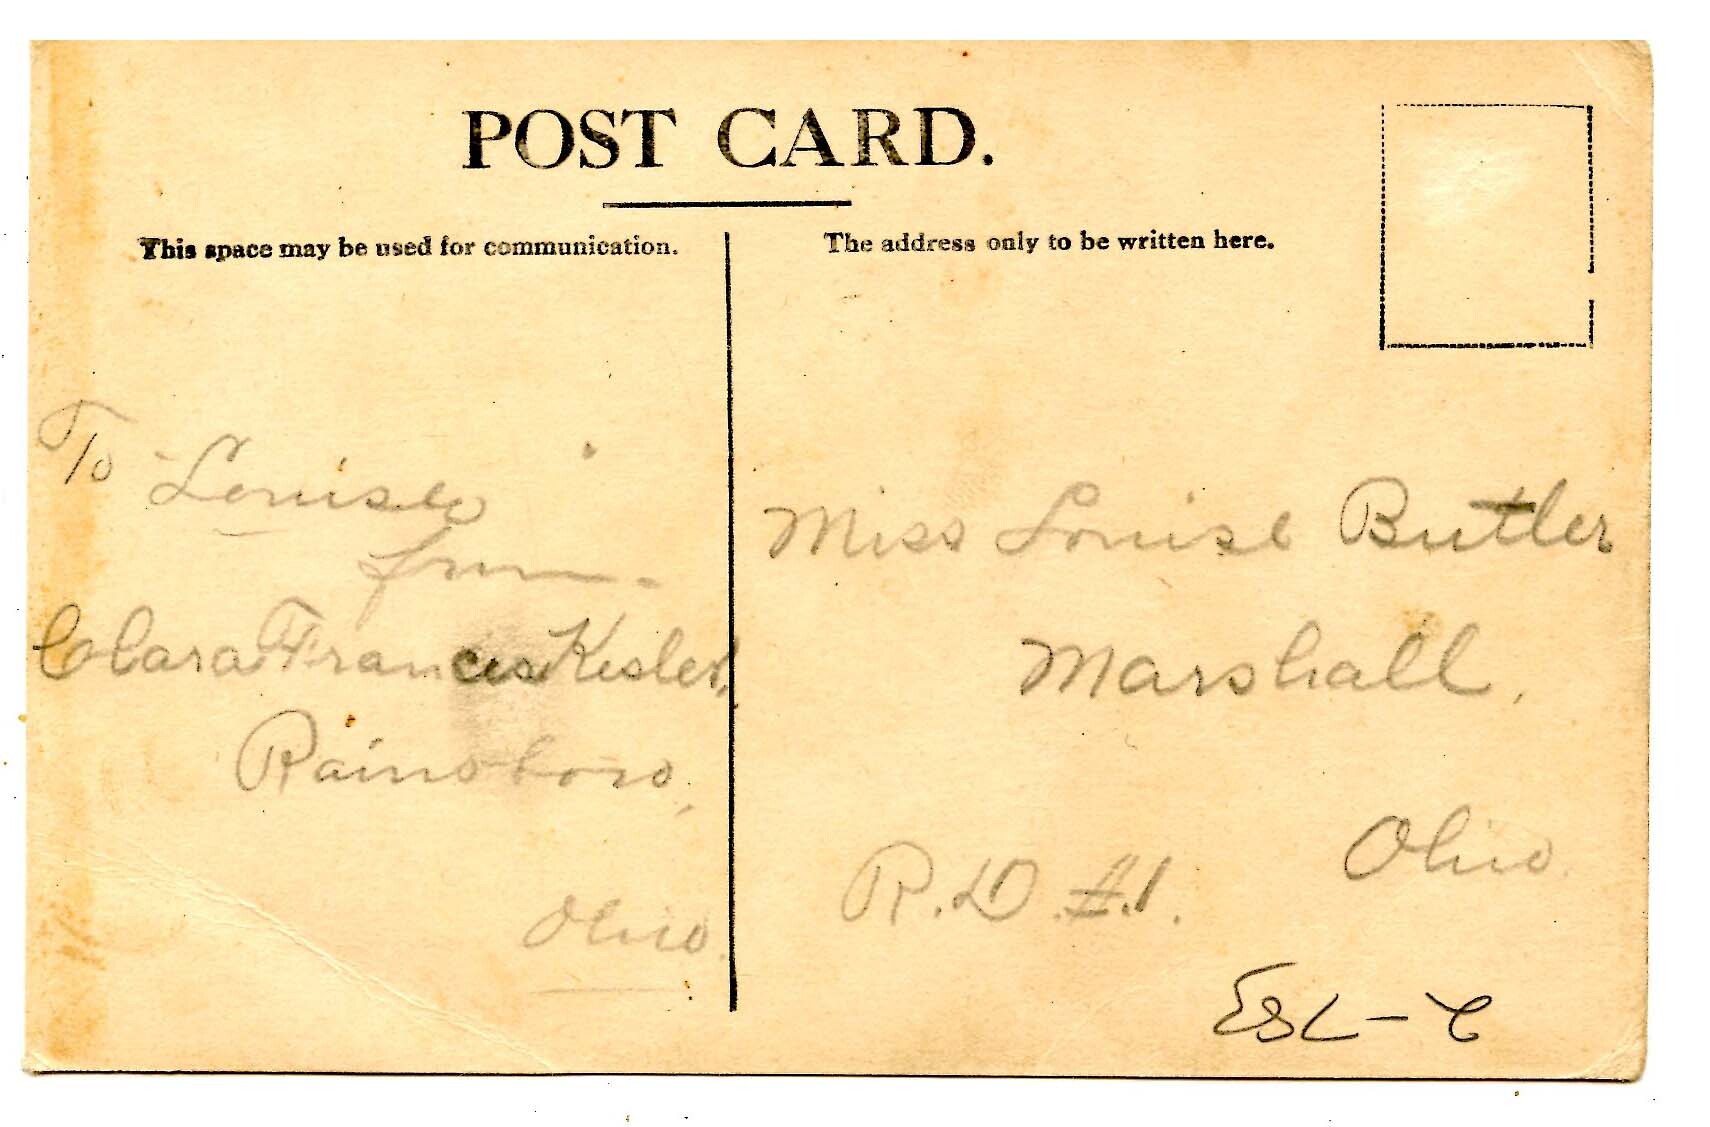 POST CARD.
This space may be used for communication.
The address only to be written here.
To Louise
from
Clara Frances Kesler.
Rainsboro,
Ohio.
Miss Louise Butler
Marshall,
Ohio.
R.D.#.1.